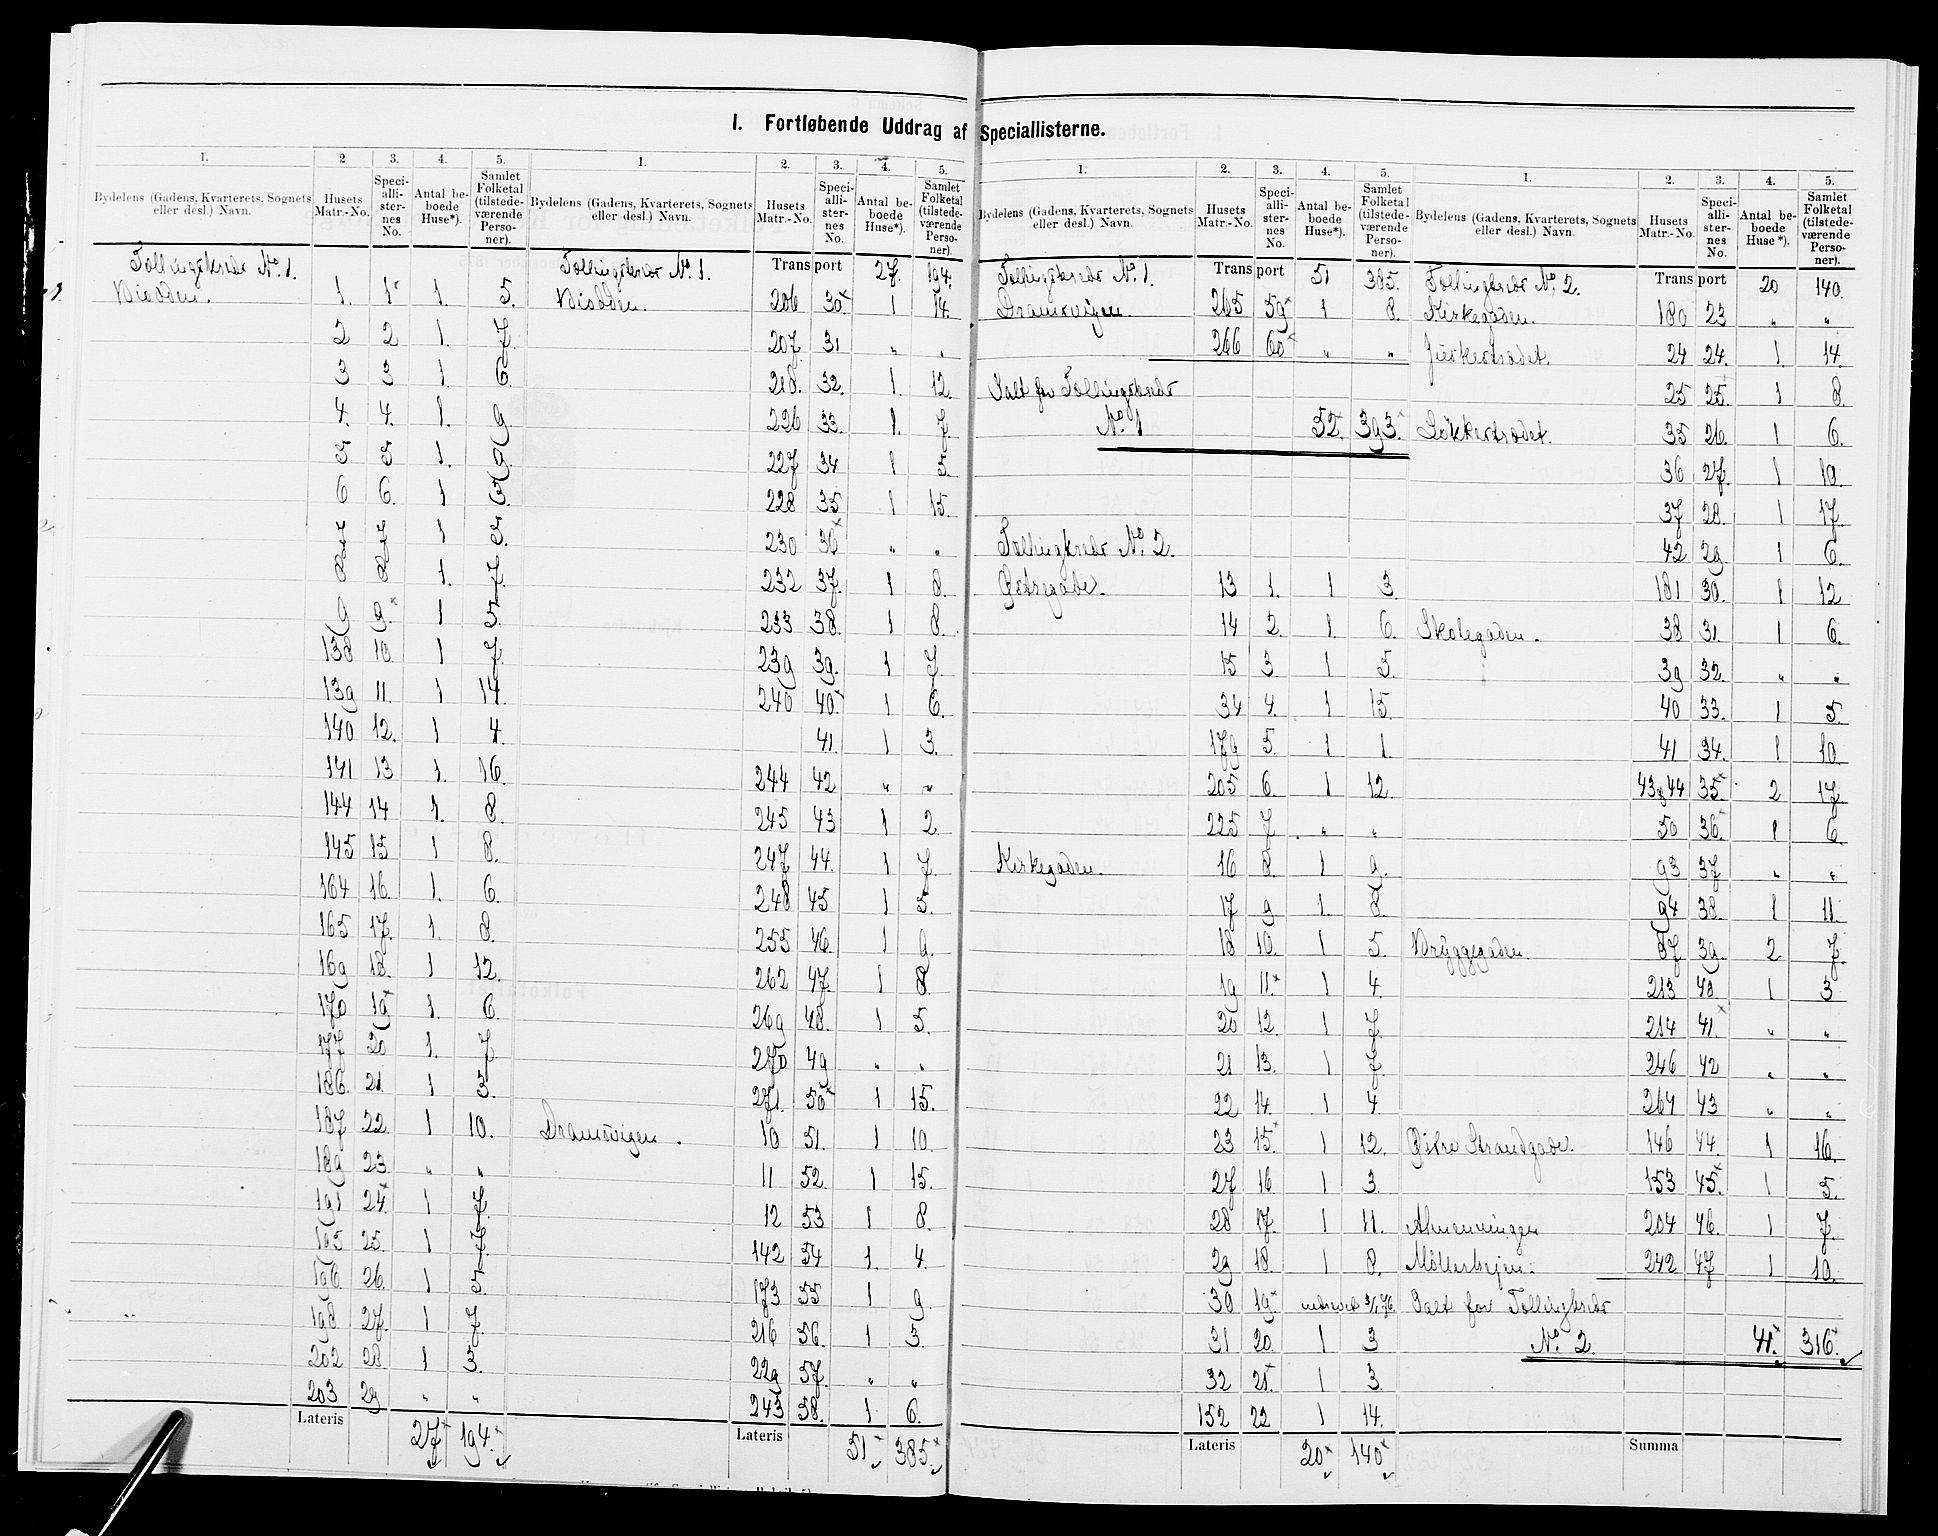 I. Fortløbende Uddrag af Speciallisterne.
1. 2 3. 4. 5.
Bydelens (Gadens, Kvarterets, Sognets eller desl.) Navn. Husets Matr.-No. Speciallisternes No. Antal beboede Huse*). Samlet Folketal (tilstedeværende Personer).
Tællingskreds No. 1.
1. 1 1. 5.
2 2 1. 7.
3 3 1. 6.
4. 4. 1. 9
5 5 1. 9.
6 6. 1 3.
7 7 1 5.
8 8 1. 7.
9 9. 1 5.
138 10. 1 7.
139 11. 1 14.
140 12. 1 4.
141 13 1. 16.
144 14 1. 8.
145 15 1 8.
164 16. 1. 6.
165 17. 1. 8.
169 18. 1 12.
170 19 1. 6.
177 20 1. 7
186. 21 1 3.
187 22. 1 10.
189 23. „ „
191 24 1 7.
195 25. 1 7.
196. 26. 1 5.
198 27. 1 7.
202 28. 1 3.
203 29 „ „
Lateris 27 194.
1. 2. 3. 4. 5.
Bydelens (Gadens, Kvarterets, Sognets eller desl.) Navn. Husets Matr.-No. Speciallisternes No. Antal beboede Huse*). Samlet Folketal (tilstedeværende Personer).
Tællingskreds No. 1. Transport 27. 194.
206 30 1 14.
207 31 „ „
218. 32. 1. 12.
226 33. 1. 7.
227 34 1 5.
228 35 1 15.
230 36 „ „
232 37. 1 8.
233 38. 1 8.
239 39. 1 7.
240 40. 1 6.
41. 1 3.
244 42 „ „
245 43 1 2.
247 44. 1 7
248 45 1 5.
255 46. 1 9.
262 47. 1 8.
269 48. 1 5.
270 49 „ „
271. 50 1 15.
Dramsvigen. 10 51. 1 10.
11 52. 1 15.
12 53 1 8.
142 54 1. 4.
173 55 1 9
216 56. 1 3.
229 57. „ „
243 58. 1 6.
Lateris 51 385.
1. 2. 3. 4. 5.
Bydelens (Gadens, Kvarterets, Sognets eller desl.) Navn. Husets Matr.-No. Speciallisternes No. Antal beboede Huse*). Samlet Folketal (tilstedeværende Personer).
Tællingskreds No. 1. Transport 51 385.
Dramsvigen. 265 59 1 8.
266 60 „ „
Ialt for Tællingskreds
No. 1 52. 393.
Tællingskreds No. 2.
Østregade. 13 1. 1 3.
14 2. 1. 6.
15 3. 1 5.
34 4. 1 15.
179 5. 1 1.
205 6. 1 12.
225 7 „ „
Kirkegaden. 16 8. 1 9.
17 9 1. 8.
18 10. 1 5.
19 11. 1 4.
20 12. 1 7.
21 13. 1 7.
22 14. 1 4
23 15. 1 12.
27 16 1 3.
28 17. 1 11.
29 18. 1 8.
30 19.
31 20. 1 3
32 21. 1 3.
152 22 1 14.
Lateris 20 140
1. 2. 3. 4. 5.
Bydelens (Gadens, Kvarterets, Sognets eller desl.) Navn. Husets Matr.-No. Speciallisternes No. Antal beboede Huse*). Samlet Folketal (tilstedeværende Personer).
Tællingskreds No. 2. Transport 20 140.
Kirkegaden. 180 23 „ „
24 24. 1. 14.
25 25. 1 8.
35 26. 1 6.
36 27. 1 10.
37 28. 1 17.
42 29. 1 6.
181 30. 1 12
Skolegaden. 38 31. 1 6.
39 32. „ „
40 33. 1 5.
41 34. 1 10.
43 & 44 35. 2 17.
50 36. 1 6.
93 37 „ „
94 38. 1 11.
Bryggegaden. 87 39. 2 7.
213 40. 1 3
214 41. „ „
246 42 „ „
264 43 „ „
Østre Strandgade. 146 44. 1 16.
153 45. 1 5.
Almenningen 204 46. 1 7.
242 47 1 10.
Ialt for Tællingskreds
No. 2. 41. 316.
Summa